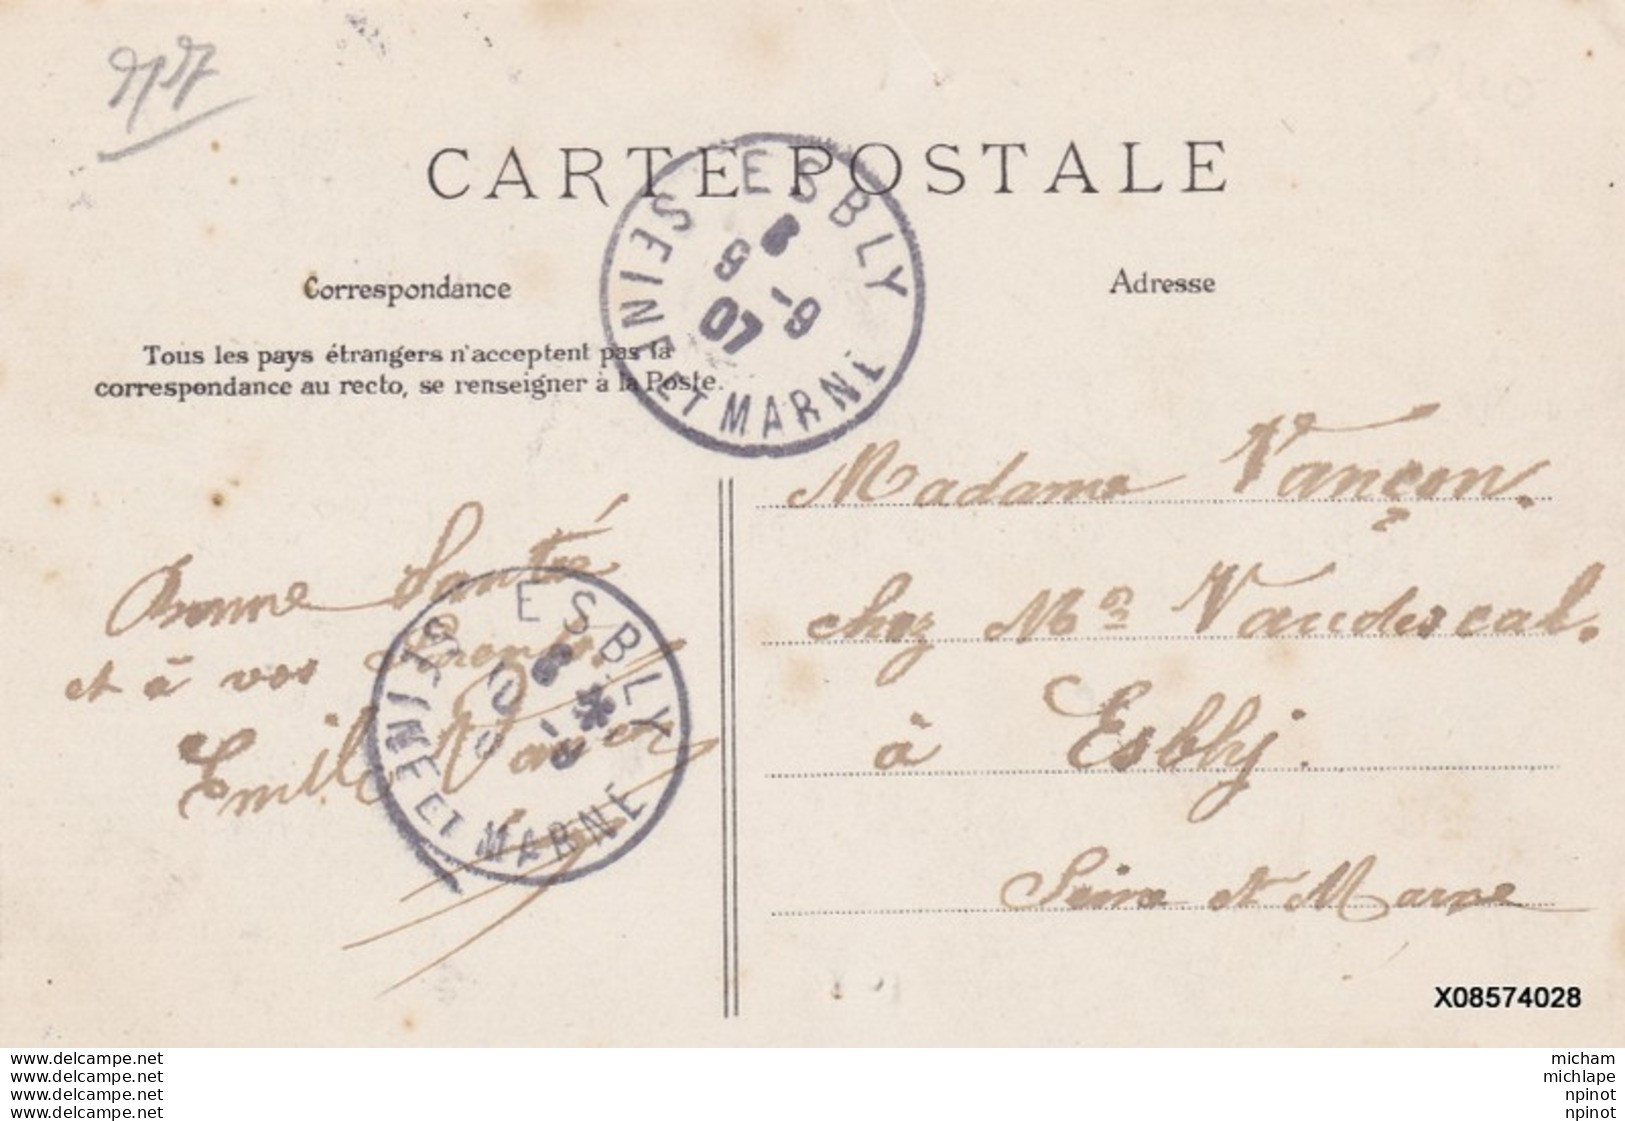 CARTE POSTALE
Correspondance
Adresse
Tous les pays étrangers n'acceptent pas la
correspondance au recto, se renseigner à la Poste.
ESBLY
SEINE ET MARNE
8
5 -9
07
Bonne Santé
et à vos Parents.
Emile Vançon
ESBLY
SEINE ET MARNE
Madame Vançon.
chez Mr Vaudescal.
à Esbly.
Seine et Marne
X08574028
www.delcampe.net
www.delcampe.net
www.delcampe.net
www.delcampe.net
micham
michlape
npinot
npinot